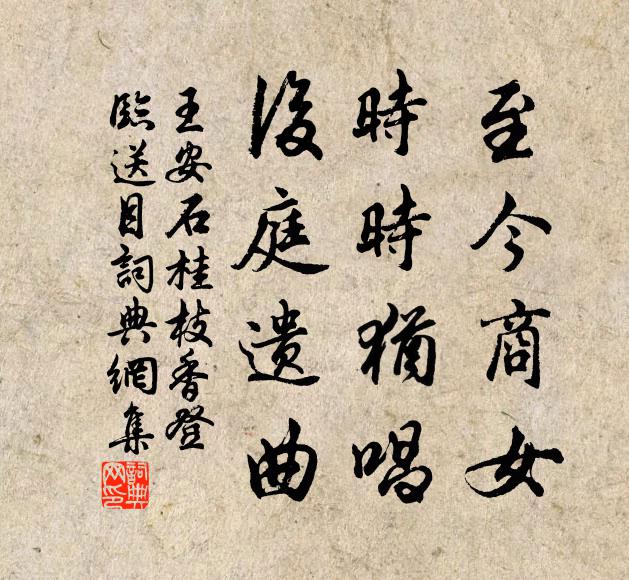 至今商女
時時猶唱
後庭遺曲
王安石桂枝香登
臨送目詞典網集
詞典
网印